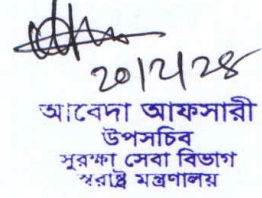 ২০/২/২৪
আবেদা আফসারী
উপসচিব
সুরক্ষা সেবা বিভাগ
স্বরাষ্ট্র মন্ত্রণালয়